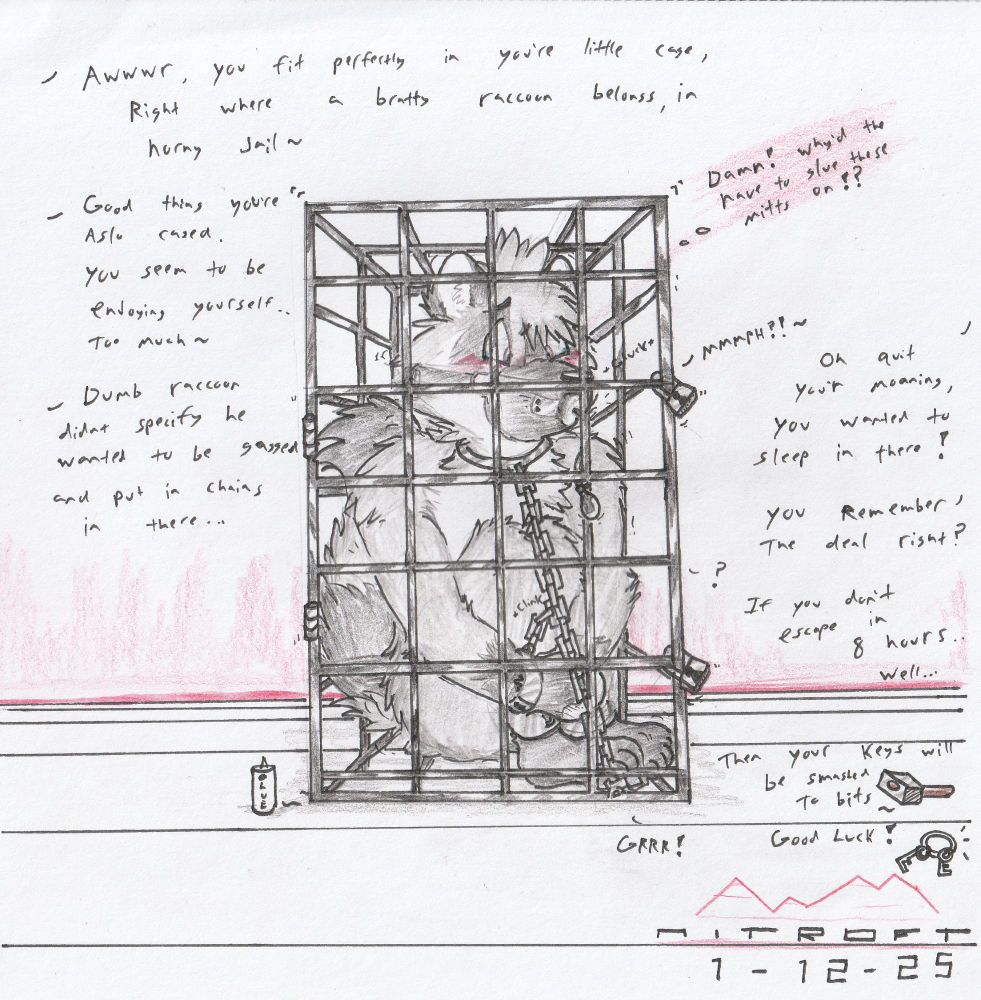 Awwwr, you fit perfectly in you're little cage,
Right where a bratty raccoon belongs, in
horny Jail~
Damn! why'd the
have to glue those
mitts on!?
Good thing you're
Aslo caged.
you seem to be
enjoying yourself..
Too much~
MMMPH?!~
Oh quit
you'r moaning,
you wanted to
sleep in there!
Dumb raccoon
didnt specify he
wanted to be gassed
and put in chains
in there...
You Remember,
The deal right?
?
*Clink*
If you don't
escape in
8 hours..
well...
Then your keys will
be smashed
To bits
~
GLUE
GRRR!
Good Luck!
NITROFT
1-12-25